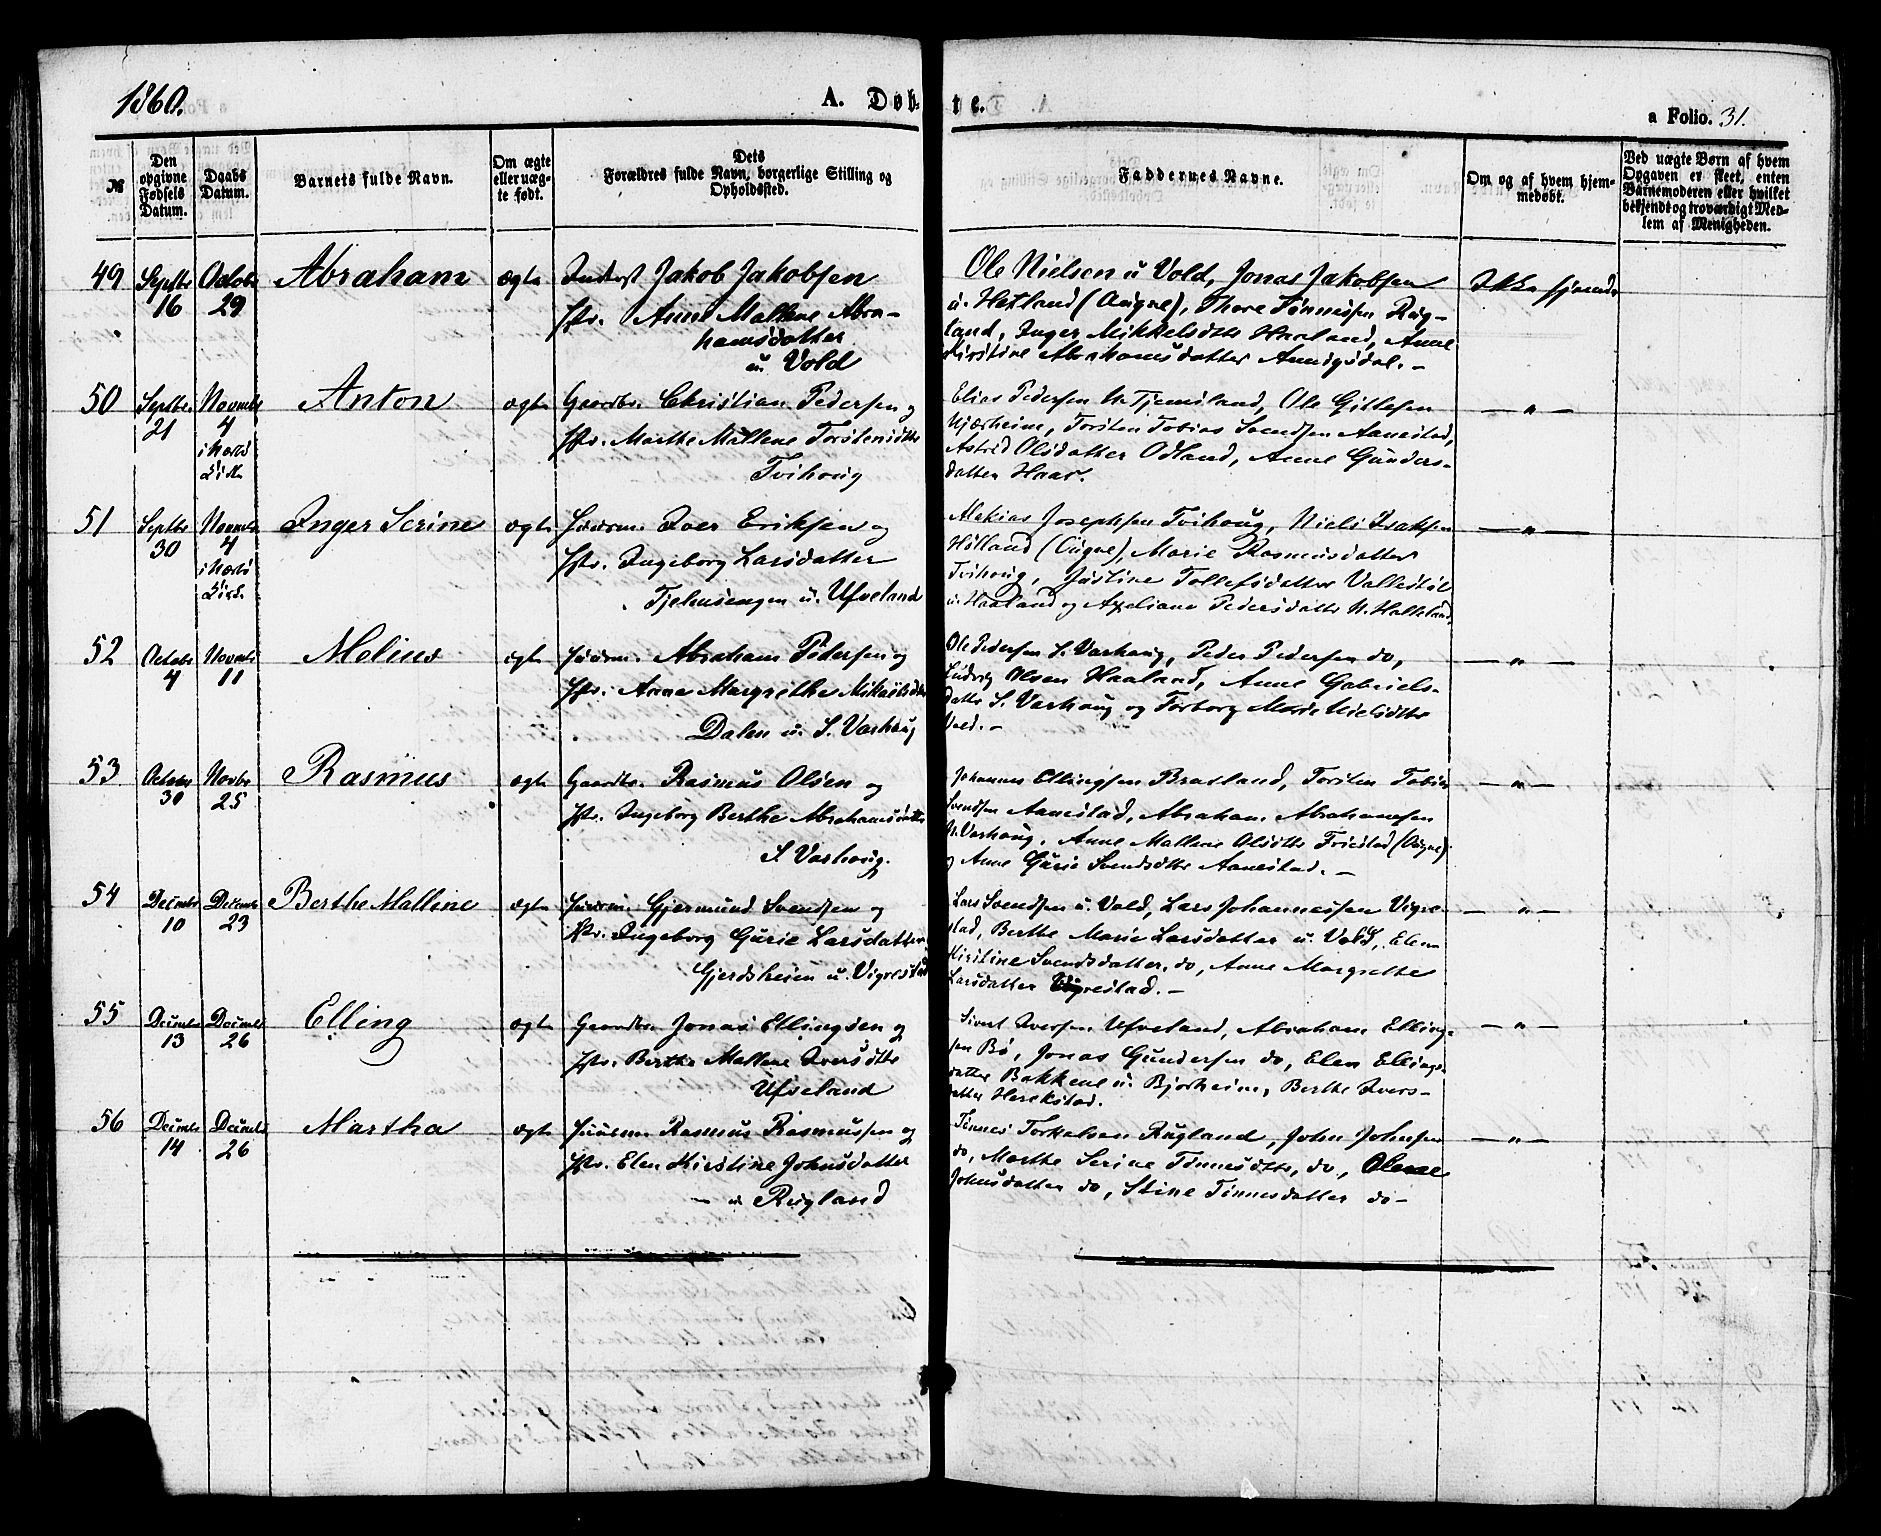 1860.
A. Døb-
te.
a Folio. 31.
№
Den opgivne Fødsels Datum.
Daabs Datum.
Barnets fulde Navn.
Om ægte eller uæg-te født.
Dets Forældres fulde Navn, borgerlige Stilling og Opholdssted.
Faddernes Navne.
Om og af hvem hjem-medøbt.
Ved uægte Børn af hvem Opgaven er skeet, enten Barnemoderen eller hvilket bekjendt og troværdigt Med-lem af Menigheden.
49
Septbr 16
Octobr 29
Abraham
ægte
Inderst Jakob Jakobsen
Hstr. Anne Mallene Abra-
hamsdatter
u. Vold
Ole Nielsen u Vold, Jonas Jakobsen
u. Hetland (Ougne), Thore Tønnessen Rug-
land, Inger Mikkelsdttr Haaland, Anne
Kirstine Abrahamsdatter Aunigsdal. -
Ikke hjemdt
50
Septbr. 21
Novmbr 4
i Nærbø
Kirk.
Anton
ægte
Gaardbr. Christian Pedersen og
Hstr. Marthe Mallene Torstensdttr
Tvihoug
Elias Pedersen N. Tjemsland, Ole Gittesen
Njærheim, Torsten Tobias Svendsen Aanestad,
Astrid Olsdatter Odland, Anne Gunders-
datter Haar.
— „ —
51
Septbr 30
Novmbr 4
i Nærbø
Kirk.
Inger Serine
ægte
Huusm. Iver Eriksen og
Hstr. Ingeborg Larsdatter
Tjelmsengen u. Ufveland
Mathias Josephsen Tvihoug, Niels Isaksen
Hølland (Ougne), Marie Rasmusdatter
Tvihoug, Justine Tollefsdatter
u. Haaland og Axeliane Pedersdatter
— „ —
52
Octobr 4
Novmbr 11
Melius
ægte
Huusm. Abraham Pedersen og
Hstr. Anne Margrethe Mikkelsdttr
Dalen u. S. Varhaug
Ole Pedersen S. Varhaug, Peder Pedersen do,
Ludvig Olsen Haaland, Anne Gabriels-
datter S. Varhaug og Torborg Marie Nielsdttr
Vold. -
— „ —
53
Octobr 30
Novbr 25
Rasmus
ægte
Gaardbr. Rasmus Olsen og
Hstr. Ingeborg Berthe Abrahamsdatter
S. Varhoug.
Johannes Ellingsen Bratland, Torsten Tobias
Svendsen Aanestad, Abraham Abrahamsen
N. Varhoug, Anne Mallene Olsdttr Friestad (Ougne)
og Anne Gurie Svendsdttr Aanestad. -
— „ —
54
Decmbr 10
Decmbr 23
Berthe Malline
ægte
Huusm. Gjermund Svendsen og
Hstr. Ingeborg Gurie Larsdatter
Gjerdsheien u. Vigrestad
Lars Svendsen u. Vold, Lars Johannessen Vigre-
stad, Berthe Marie Larsdatter u. Vold, Elen
Kirstine Svendsdatter do, Anne Margrethe
Larsdatter Vigrestad. -
— „ —
55
Decmbr 13
Decmbr 26
Elling
ægte
Gaardbr. Jonas Ellingsen og
Hstr. Berthe Mallene Iversdttr
Ufveland
Sivert Iversen Ufveland, Abraham Elling-
sen Bø, Jonas Gundersen do, Elen Ellings-
datter Bakkene u. Bjorheim, Berthe Ivers-
datter Herekstad.
— „ —
56
Decmbr 14
Decmbr 26
Martha
ægte
Huusm. Rasmus Rasmussen og
Hstr. Elen Kirstine Johnsdatter
— u Rugland
Tønnes Torkelsen Rugland, John Johnsen
do, Marthe Serine Tønnesdttr, do, Olene
Johnsdatter do, Stine Tønnesdatter do -
— „ —